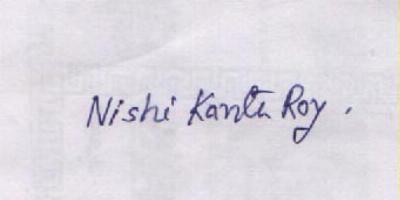 Nishi Kanta Roy.